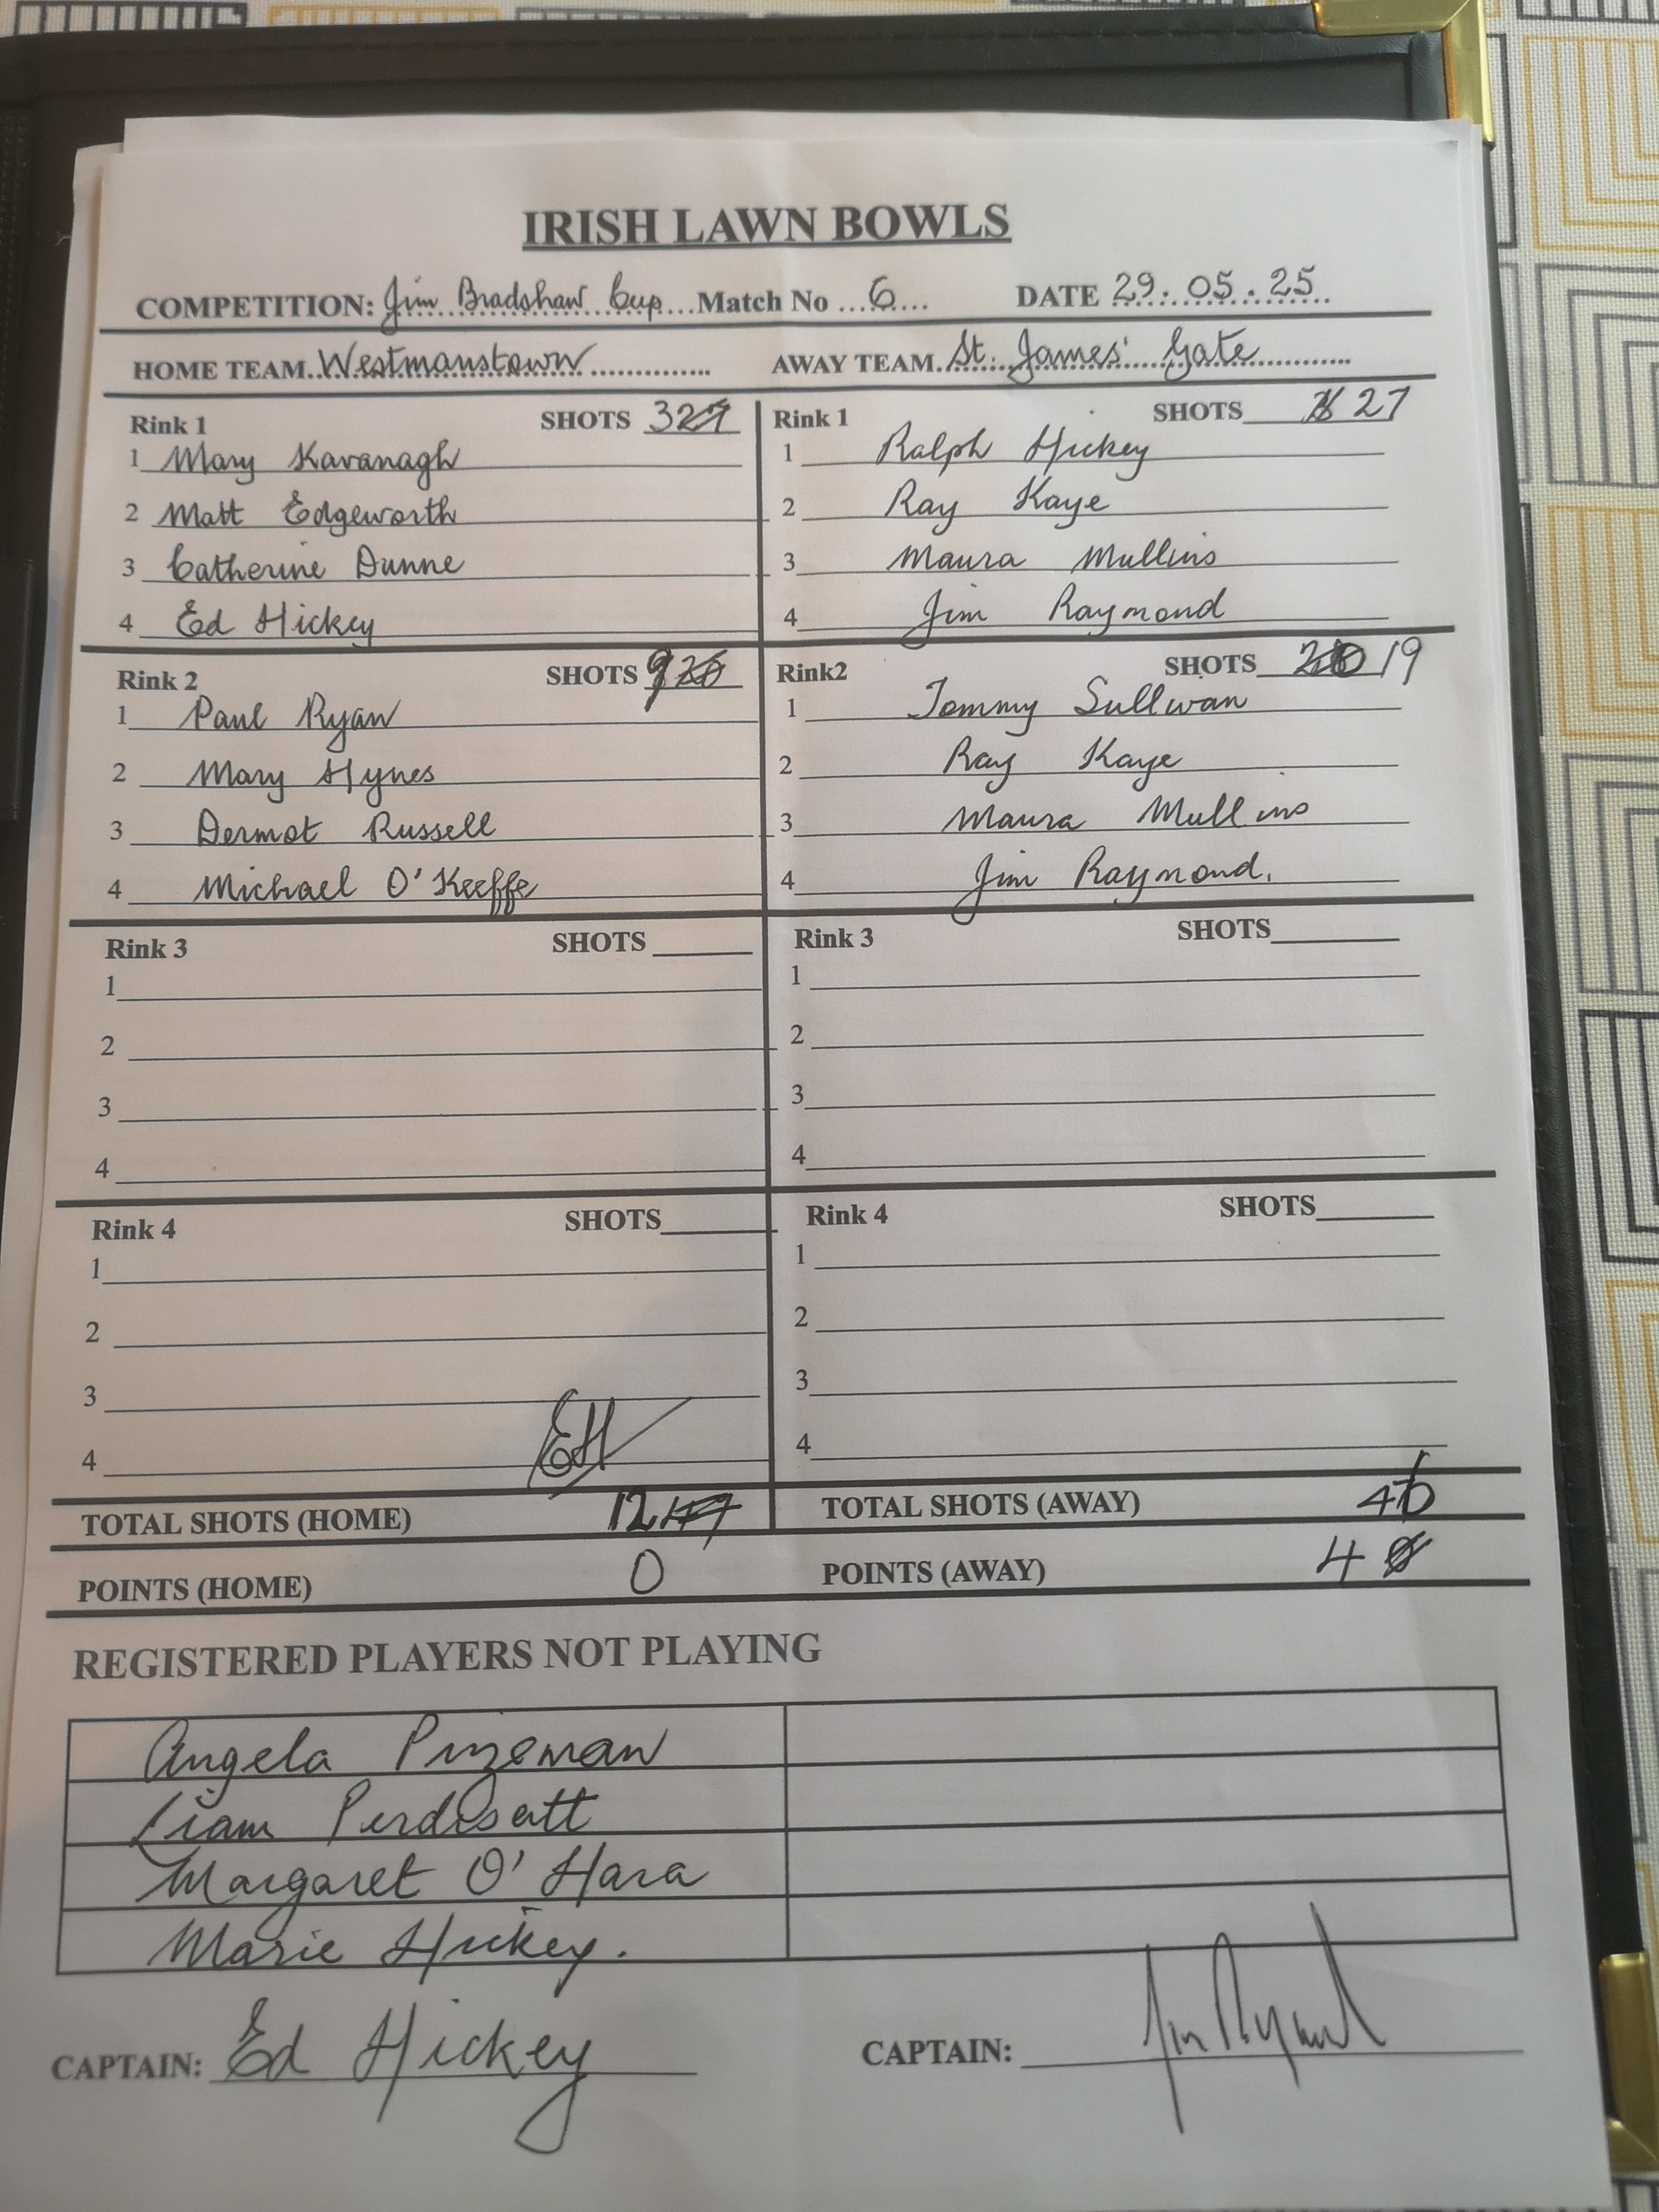 IRISH LAWN BOWLS
COMPETITION: Jim Bradshaw Cup Match No 6 DATE 29.05.25
HOME TEAM Westmanstown AWAY TEAM St. James' Gate
Rink 1 SHOTS 3
1 Mary Kavanagh
2 Matt Edgeworth
3 Catherine Dunne
4 Ed Hickey
Rink 1 SHOTS 27
1 Ralph Hickey
2 Ray Kaye
3 Maura Mullins
4 Jim Raymond
Rink 2 SHOTS 9
1 Paul Ryan
2 Mary Hynes
3 Dermot Russell
4 Michael O'Keeffe
Rink2 SHOTS 19
1 Tommy Sullivan
2 Ray Kaye
3 Maura Mullins
4 Jim Raymond.
Rink 3 SHOTS
1
2
3
4
Rink 3 SHOTS
1
2
3
4
Rink 4 SHOTS
1
2
3
4 EH
Rink 4 SHOTS
1
2
3
4
TOTAL SHOTS (HOME) 12
TOTAL SHOTS (AWAY) 46
POINTS (HOME) 0
POINTS (AWAY) 4
REGISTERED PLAYERS NOT PLAYING
Angela Prizeman
Liam
Margaret O'Hara
Marie Hickey.
CAPTAIN: Ed Hickey
CAPTAIN: